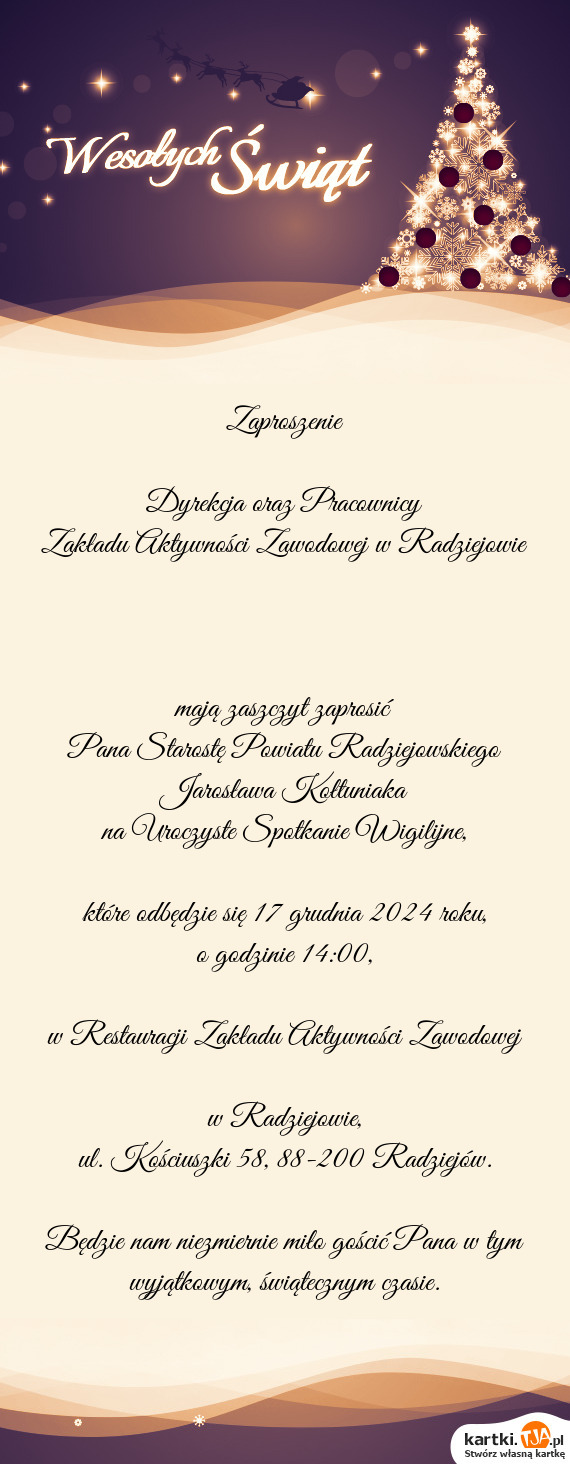 Wesołych Świąt
Zaproszenie
Dyrekcja oraz Pracownicy
Zakładu Aktywności Zawodowej w Radziejowie
mają zaszczyt zaprosić
Pana Starostę Powiatu Radziejowskiego
Jarosława Kołtuniaka
na Uroczyste Spotkanie Wigilijne,
które odbędzie się 17 grudnia 2024 roku,
o godzinie 14:00,
w Restauracji Zakładu Aktywności Zawodowej
w Radziejowie,
ul. Kościuszki 58, 88-200 Radziejów.
Będzie nam niezmiernie miło gościć Pana w tym
wyjątkowym, świątecznym czasie.
kartki.TJA.pl
Stwórz własną kartkę